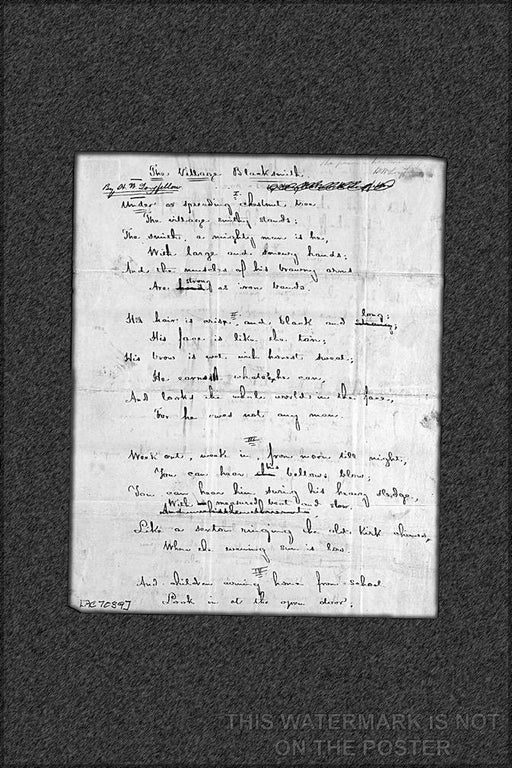 The Village Blacksmith.
By H. W. Longfellow
I.
Under a spreading chestnut tree
The village smithy stands;
The smith, a mighty man is he,
With large and sinewy hands;
And the muscles of his brawny arms
Are hard strong as iron bands.
II
His hair is crisp, and black and long;
His face is like the tan;
His brow is wet with honest sweat;
He earns whate'er he can,
And looks the whole world in the face,
For he owes not any man.
III
Week out, week in, from morn till night,
You can hear his bellows blow;
You can hear him swing his heavy sledge,
With measured beat and slow
Like a sexton ringing the old kirk chimes,
When the evening sun is low.
IV
And children coming home from school
Look in at the open door;
[AC 7089]
THIS WATERMARK IS NOT
ON THE POSTER